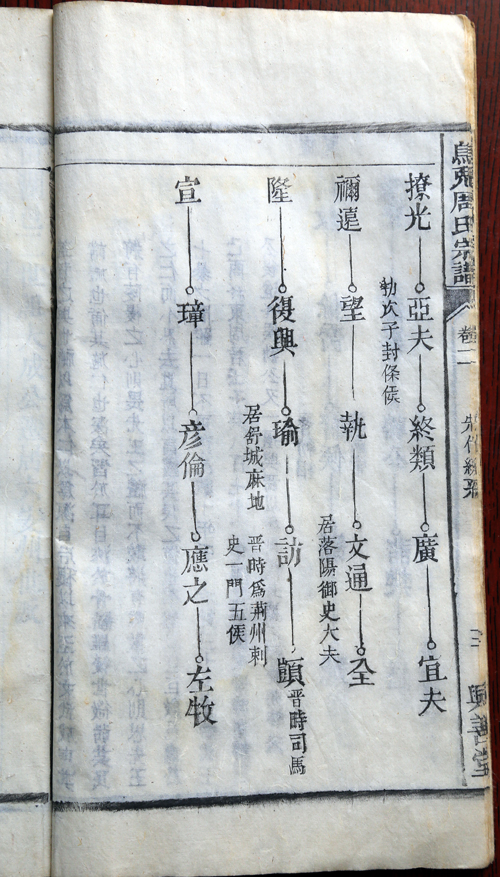 周氏宗譜
卷二
先代
興善堂
撩光 亞夫 終類 廣 宜夫
勃次子封條侯
禰遠 望 執 文通 全
居落陽御史大夫
隆 復興 瑜 訪 顗
居舒城麻地
晋時爲荆州刺
史一門五侯
晋時司馬
宣 璋 彦倫 應之 左牧